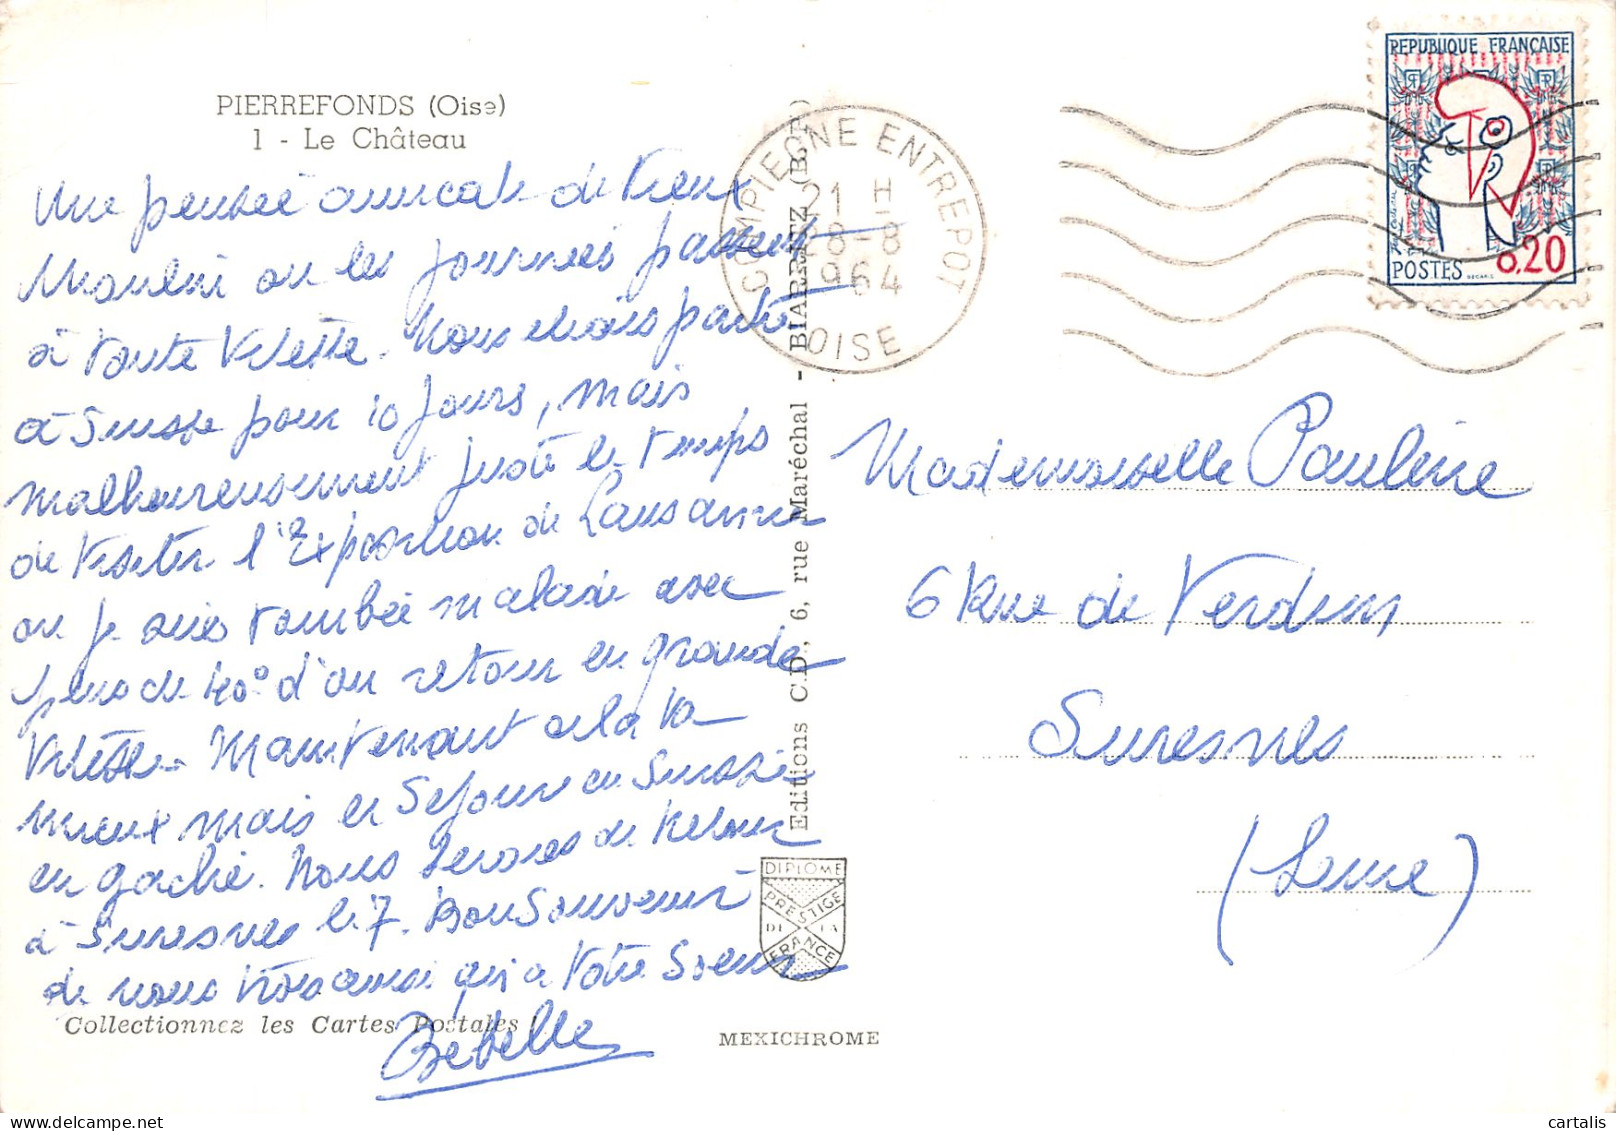 PIERREFONDS (Oise)
1 - Le Château
Une pensée amicale de Vieux
Moulin ou les journées passent
à toute Vitesse. Nous étions partis
à Suisse pour 10 jours, mais
malheureusement juste le temps
de Visiter l'Exposition de Lausanne
ou je suis tombée malade avec
plus de 40° d'ou retour en grande
Vitesse. Maintenant cela va
mieux mais le Séjour en Suisse
en gaché. Nous serons de retour
à Suresnes le 7. Bon Souvenir
de nous trois aussi qu'a Votre Soeur
Bebelle
Collectionnez les Cartes Postales !
Editions C.D., 6, rue Maréchal - BIARRITZ (B.-P.)
DIPLOME
PRESTIGE
DE LA
FRANCE
MEXICHROME
COMPIEGNE ENTREPOT
21 H
28-8
1964
OISE
REPUBLIQUE FRANÇAISE
POSTES
0.20
Mademoiselle Pauline
6 Rue de Verdun
Suresnes
(Seine)
cartalis